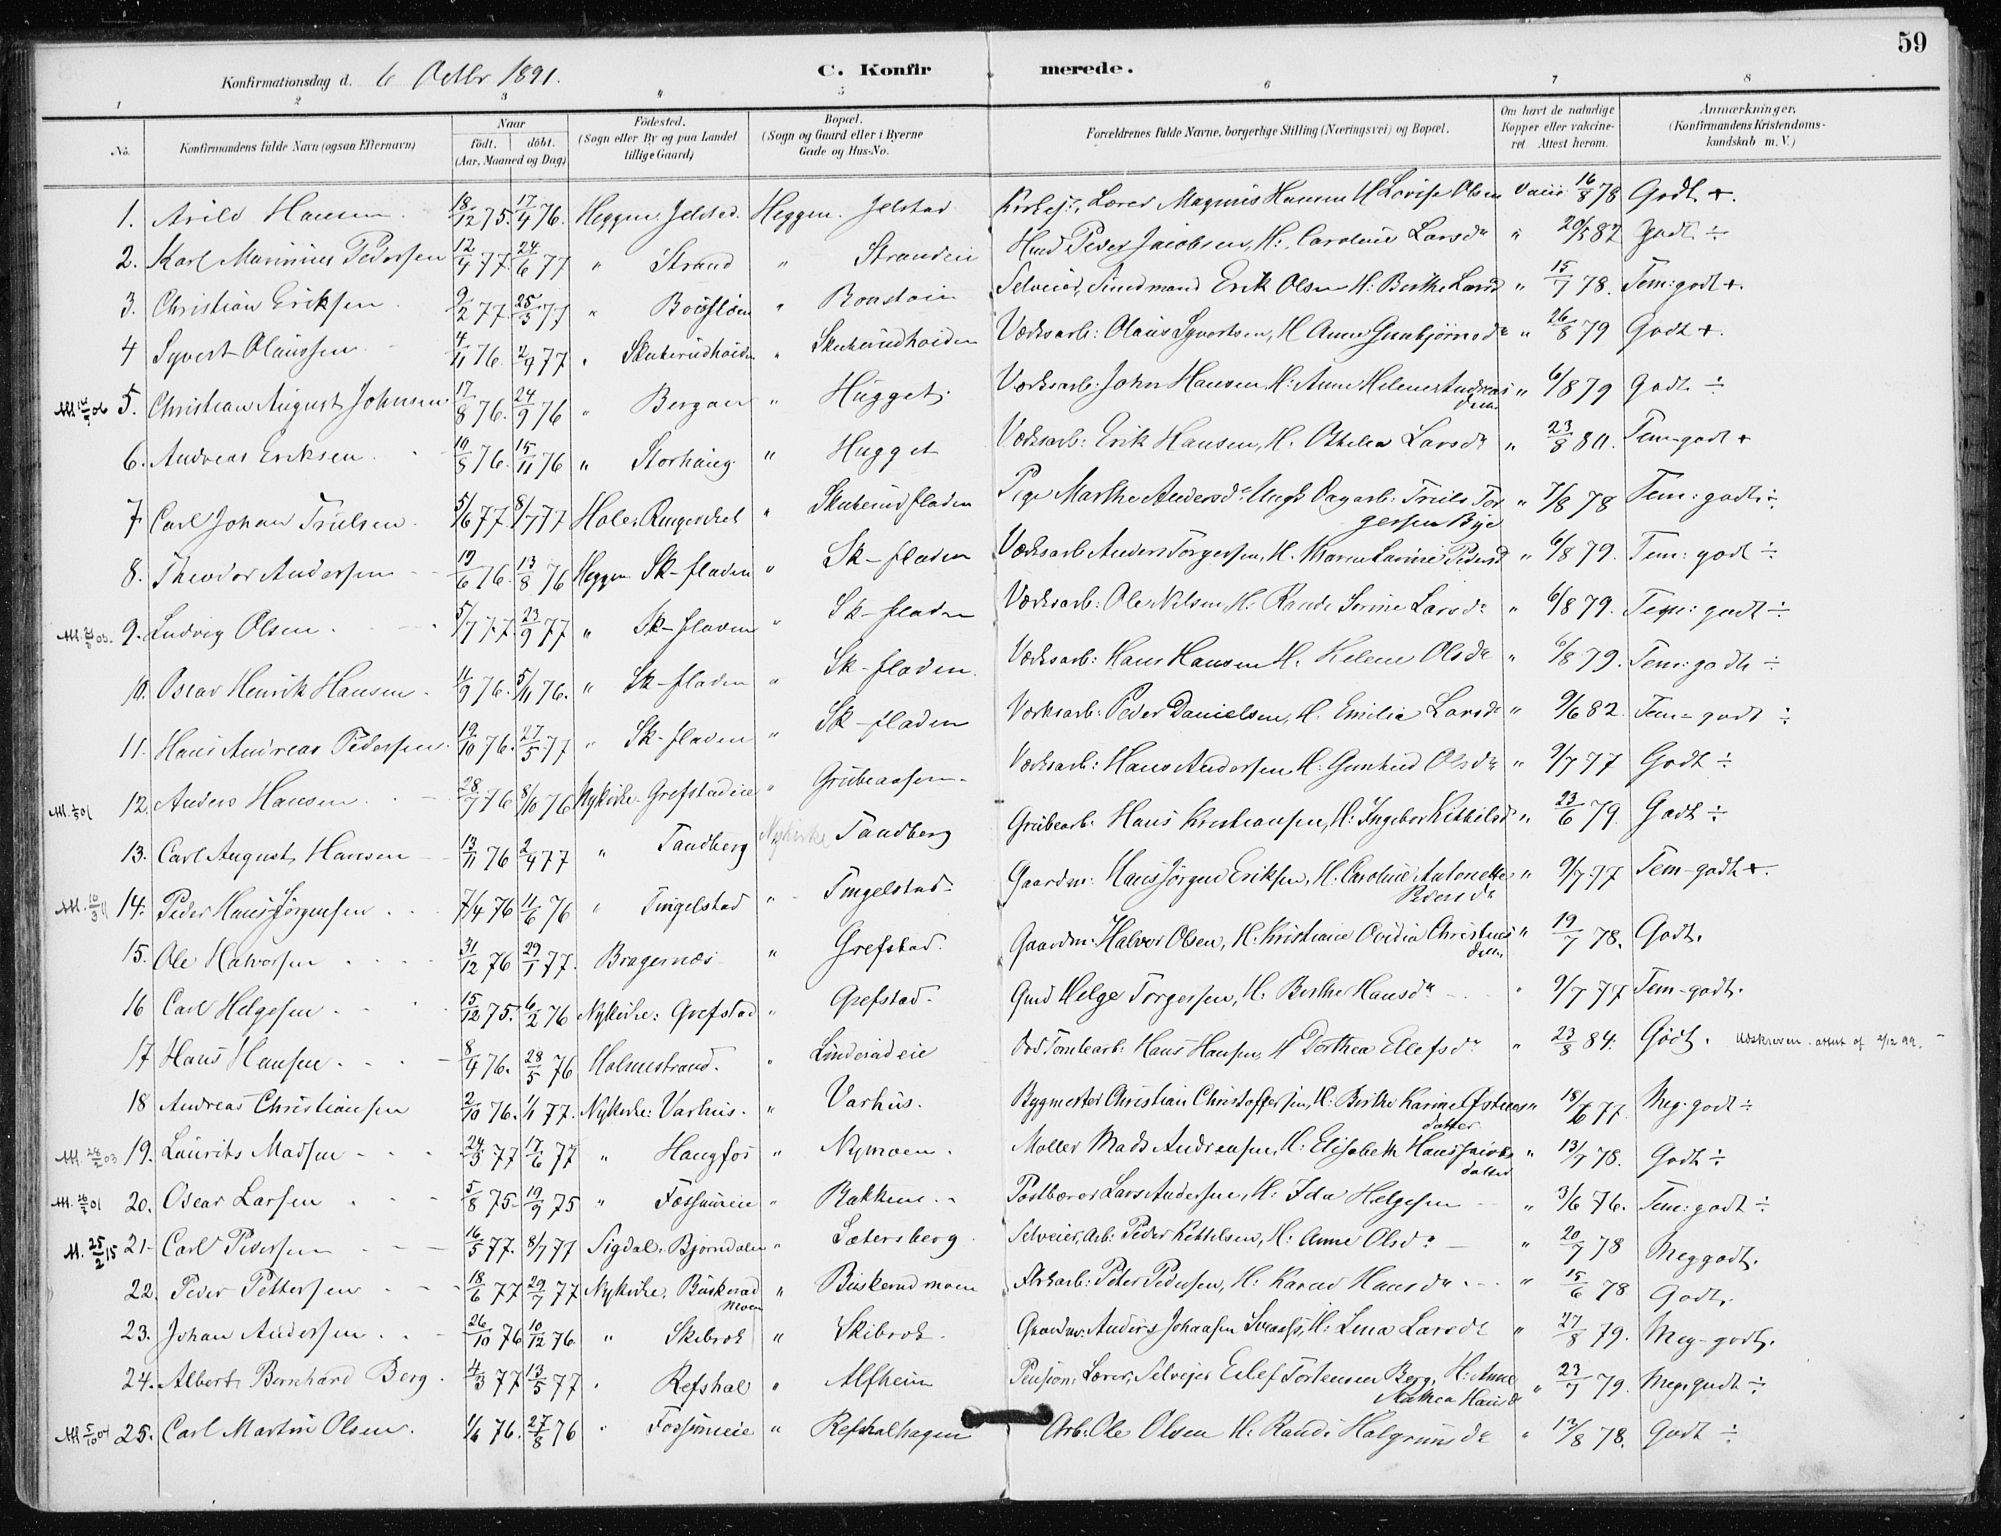 59
Konfirmationsdag d. 6 Octbr 1891.
C. Konfirmerede.
1 2 3 4 5 6 7 8
No. Konfirmandens fulde Navn (ogsaa Efternavn) Naar født. døbt. (Aar, Maaned og Dag) Fødested. (Sogn eller By og paa Landet tillige Gaard) Bopæl. (Sogn og Gaard eller i Byerne Gade og Hus-No. Forældrenes fulde Navne, borgerlige Stilling (Næringsvei) og Bopæl. Om havt de naturlige Kopper eller vakcineret Attest herom. Anmærkninger. (Konfirmandens Kristendomskundskab m. V.)
1. Arild Hansen 18/12 75. 17/4 76. Heggen. Jelstad. Heggen. Jelstad Kirkesg., Lærer Magnus Hansen H Lovise Olsen Vacc. 16/8 78 Godt +.
2. Karl Marinius Pedersen 12/4 77 24/6 77 " Strand " Strandeie Hmd Peder Jacobsen, H. Caroline Larsdr " 20/5 82 Godt ÷
3. Christian Eriksen 9/2 77. 25/3 77 " " Selveier, Erik Olsen H. Berthe Larsd " 15/7 78. Tem: godt +.
4 Syvert Olaussen 4/11 76 2/9 77 " Skuterudhoiden " Skuterudhoiden Værksarb: Olaus Syvertsen, H Anne Gunbjørnsdr " 26/8 79 Godt +.
5. Christian August Johnsen 17/8 76. 24/9 76 " Bergan " Hugget. Værksarb: John Hansen, H. Anne Helene Andreasdatter " 6/8 79 Godt ÷
6. Andreas Eriksen 10/8 76. 15/11 76 " Storhaug " Hugget Værksarb: Erik Hansen, H. Othelia Larsdr " 23/8 80. Tem-godt +
7. Carl Johan Trulsen 5/6 77 8/7 77 Hole, Ringeriket " Skuterudfladen Pige Marthe Andersdr Ungk Dagarb. Truls Torgersen Bye " 7/8 78 Tem: godt ÷
8. Theodor Andersen 19/6 76. 13/8 76 Heggen Sk-fladen " Sk-fladen Værksarb Anders Torgersen, H. Karen Larine Pedersd " 6/8 79. Tem: godt ÷
9. Ludvig Olsen 5/7 77. 23/9 77 " Sk-fladen " Sk-fladen Værksarb: Ole Nilsen, H. Randi Sorine Larsdr " 6/8 79. Tem: godt ÷
10. Oscar Henrik Hansen 11/9 76. 5/11 76. " Sk-fladen " Sk-fladen. Værksarb: Hans Hansen H. Helene Olsdr " 6/8 79. Tem: godt ÷
11. Hans Andreas Pedersen 19/10 76. 27/5 77 " Sk-fladen " Sk-fladen Værksarb: Peder Danielsen, H. Emilia Larsdr " 9/6 82. Tem- godt ÷
12. Anders Hansen 28/7 76 8/10 76 Nykirke Grefstadeie " Grubeaasen. Værksarb: Hans Andersen H. Gunhild Olsdr " 9/7 77 Godt ÷
13. Carl August Hansen 13/11 76 2/4 77 " Tandberg Nykirke Tandberg Grubearb. Hans Kristiansen, H. Ingebor Kittilsd " 23/6 79. Godt ÷
14. Peder Hans Jørgensen 7/4 76 11/6 76 " Tingelstad " Tingelstad Gaardm: Hans Jørgen Eriksen, H. Caroline Antonette Pedersdr " 9/7 77 Tem-godt +.
15. Ole Halvorsen 31/12 76 29/1 77. Bragernæs " Grefstad. Gaardm. Halvor Olsen, H. Kristiane Ovidia Christensdatter " 19/7 78. Godt.
16 Carl Helgesen 15/12 75. 6/2 76 Nykirke: Grefstad " Grefstad. Gmd Helge Torgersen, H. Berthe Hansdr " 9/7 77 Tem-godt.
17 Hans Hansen 8/4 76. 28/5 76 Holmestrand. " Linderudeie Tomtearb: Hans Hansen, H Dorthea Ellefsdr " 23/8 84. Godt. Udskreven attest af 2/12 99.
18 Andreas Christiansen 2/10 76. 1/1 77. Nykirke: Varhus. " Varhus. Bygmester Christian Christoffersen, H. Berthe Karine datter " 18/6 77. Meg-godt ÷
19. Laurits Madsen 24/3 77 17/6 77 " Haugfos " Nymoen. Møller Mads Andreasen, H. Elisabeth Hansjacobsdatter " 13/7 78. Godt ÷
20. Oscar Larsen 5/8 75- 19/9 75 " Fossumeie " Bakkene Postbærer Lars Andersen, H: Ida Helgesen " 3/6 76. Tem: godt ÷
M. 25/2 15 21- Carl Pedersen 16/5 77. 8/7 77 Sigdal. Bjørndalen " Sætersberg Selveier, Arb: Peder Kittelsen, H: Anne Olsdr " 20/7 78 Meg godt.
22. Peder Pettersen 18/6 77 29/7 77 Nykirke. Buskerudmoen " Buskerudmoen Peter Pedersen, H: Karen Hansdr " 15/6 78 Godt.
23. Johan Andersen 26/10 76 10/12 76. " Skibrok " Skibrok. Gaardm. Anders Johansen, H: Lina Larsdr " 27/8 79. Meg-godt.
24. Albert Bernhard Berg 4/3 77 13/5 77 " Refshal " Alfheim Pension. Lærer, Selveier Eilef Tortensen Berg, H: Anne Mathea Hansdr " 23/7 79. Meg. godt ÷
25. Carl Martin Olsen. 1/6 76. 27/8 76 " Fossumeie " Refshalhagen Arb. Ole Olsen H. Randi Halgrimsdr " 12/8 78. Godt ÷